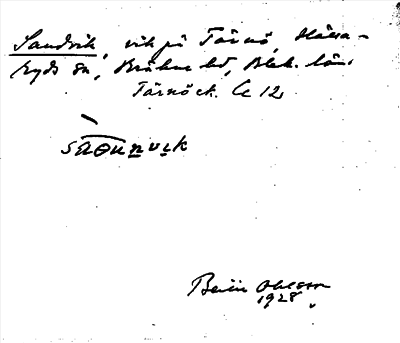 Sandvik, vik på Tärnö, Hälla-
ryds sn, Bräkne hd, Blek. län.
Tärnö ek. C 12
Bertil Ohlsson
1928